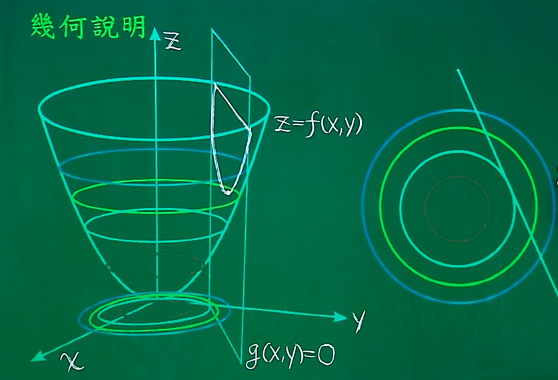 幾何說明
z
z=f(x,y)
y
g(x,y)=0
x